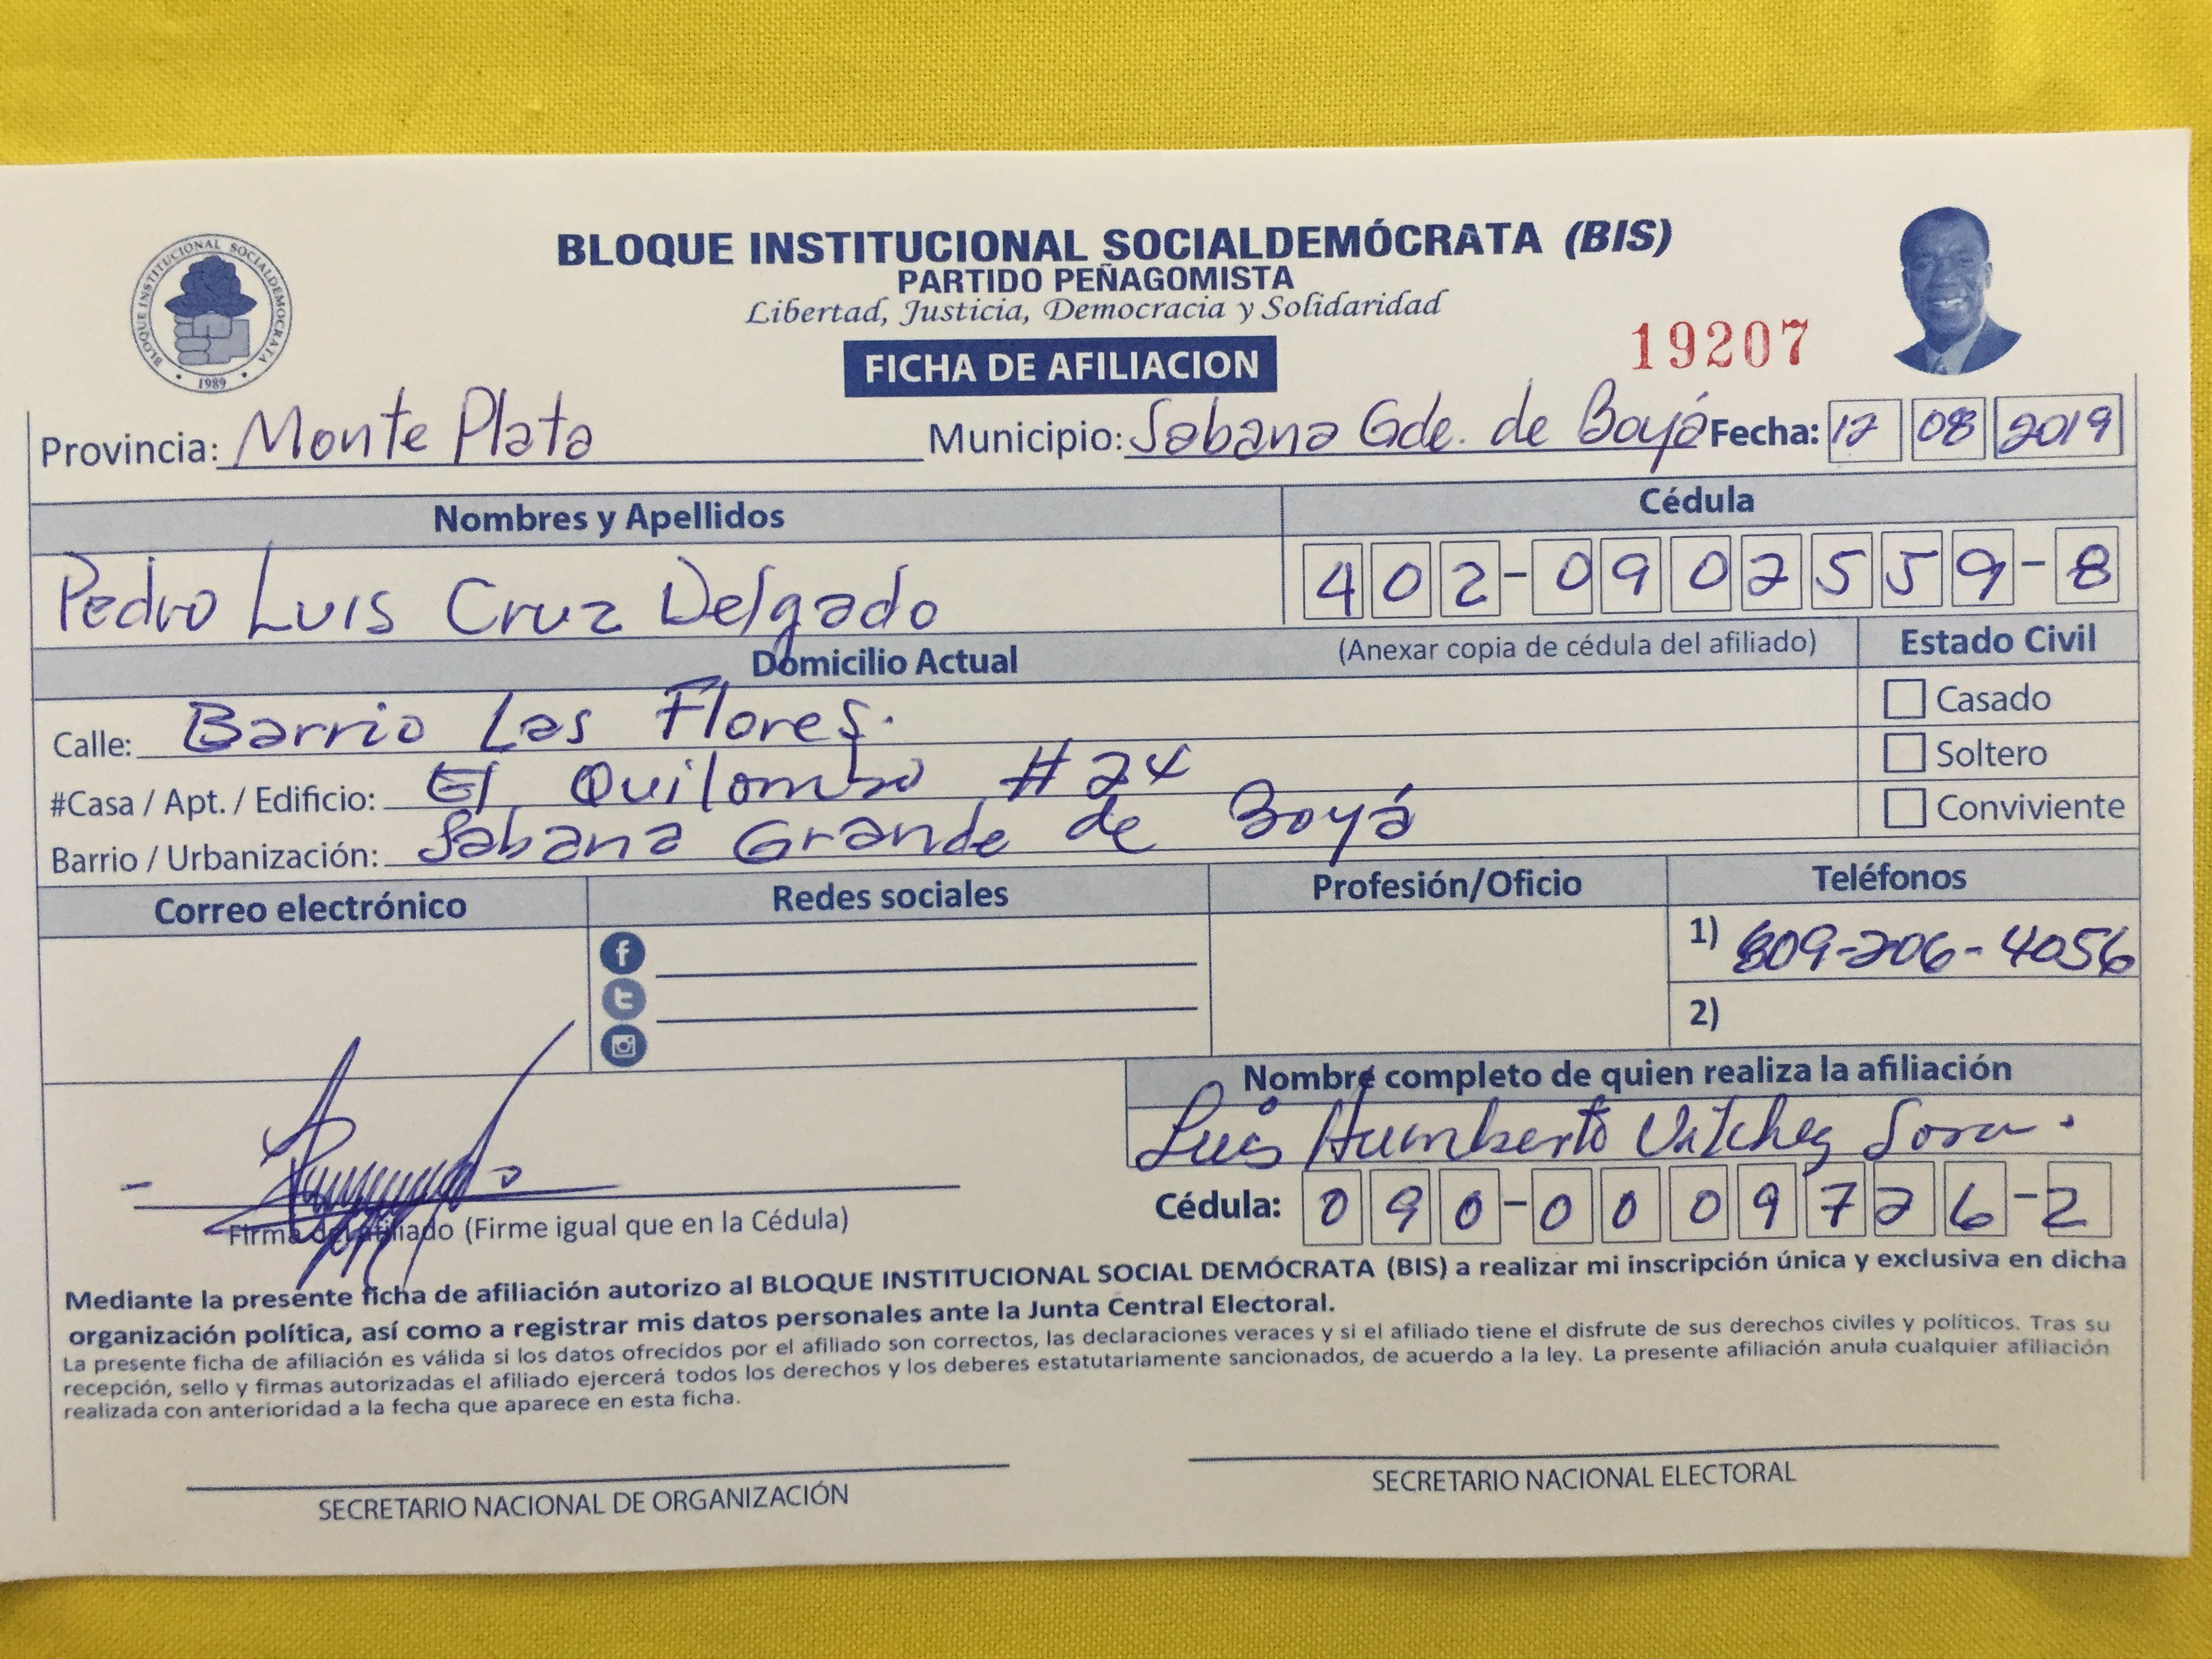 BLOQUE INSTITUCIONAL SOCIALDEMÓCRATA (BIS)
PARTIDO PEÑAGOMISTA
Libertad, Justicia, Democracia y Solidaridad
BLOQUE INSTITUCIONAL SOCIALDEMOCRATA
1989
FICHA DE AFILIACION
19207
Provincia: Monte Plata Municipio: Sabana Gde. de Boyá Fecha: 12 08 2019
Nombres y Apellidos Cédula
Pedro Luis Cruz Delgado 402-0902559-8
Domicilio Actual (Anexar copia de cédula del afiliado) Estado Civil
Calle: Barrio Las Flores. Casado
#Casa / Apt. / Edificio: El Quilombo #24 Soltero
Barrio / Urbanización: Sabana Grande de Boyá Conviviente
Correo electrónico Redes sociales Profesión/Oficio Teléfonos
1) 809-206-4056
2)
Nombre completo de quien realiza la afiliación
Luis Humberto
Cédula: 090-0009726-2
Firma del afiliado (Firme igual que en la Cédula)
Mediante la presente ficha de afiliación autorizo al BLOQUE INSTITUCIONAL SOCIAL DEMÓCRATA (BIS) a realizar mi inscripción única y exclusiva en dicha
organización política, así como a registrar mis datos personales ante la Junta Central Electoral.
La presente ficha de afiliación es válida si los datos ofrecidos por el afiliado son correctos, las declaraciones veraces y si el afiliado tiene el disfrute de sus derechos civiles y políticos. Tras su
recepción, sello y firmas autorizadas el afiliado ejercerá todos los derechos y los deberes estatutariamente sancionados, de acuerdo a la ley. La presente afiliación anula cualquier afiliación
realizada con anterioridad a la fecha que aparece en esta ficha.
SECRETARIO NACIONAL DE ORGANIZACIÓN SECRETARIO NACIONAL ELECTORAL